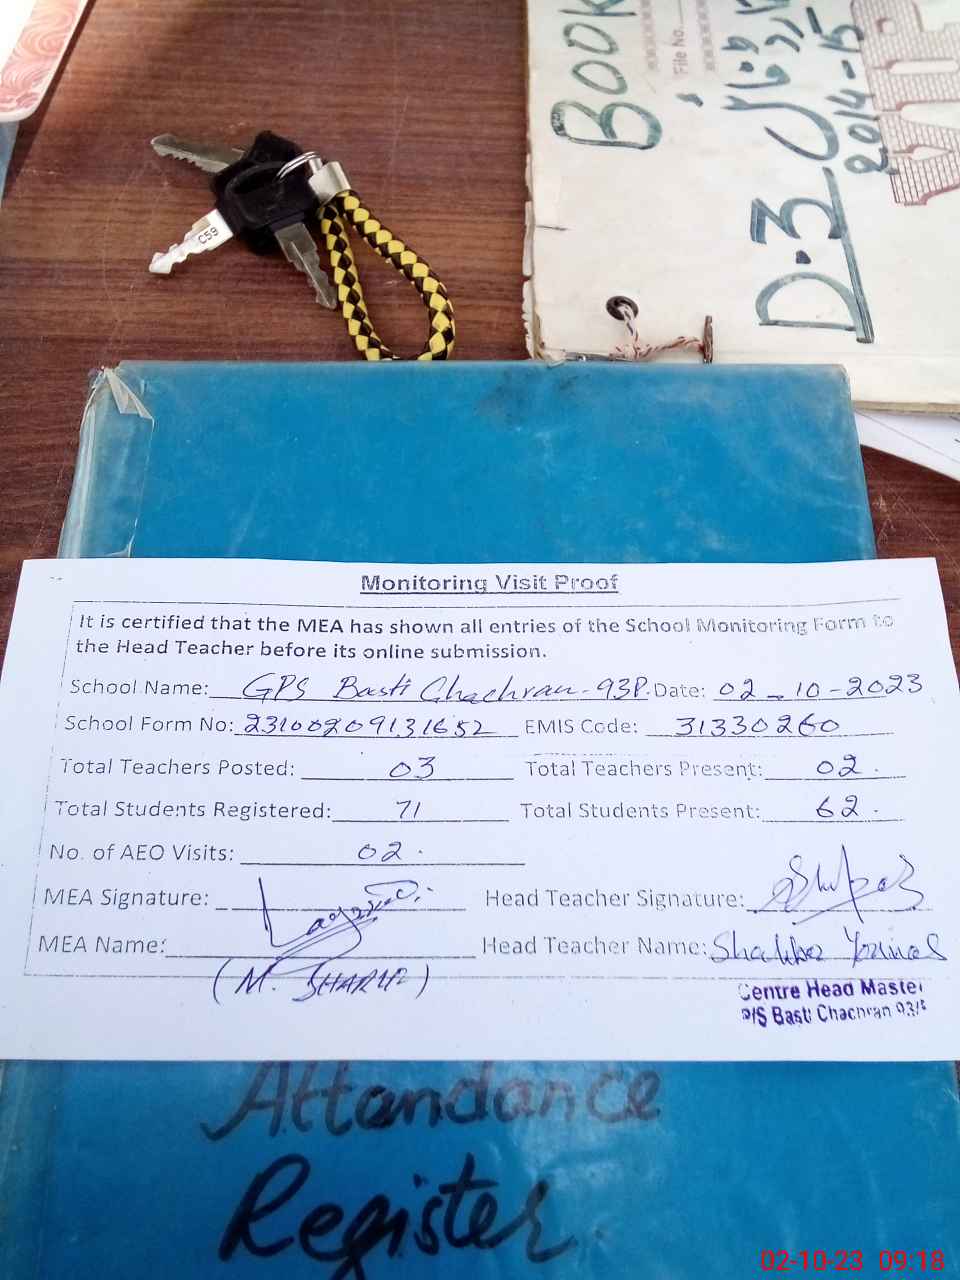 BOOK
File No.
D.3
2014-15
C59
Monitoring Visit Proof
It is certified that the MEA has shown all entries of the School Monitoring Form to
the Head Teacher before its online submission.
School Name: GPS Basti Chachran-93P. Date: 02-10-2023
School Form No: 23100209131652 EMIS Code: 31330260
Total Teachers Posted: 03 Total Teachers Present: 02.
Total Students Registered: 71 Total Students Present: 62.
No. of AEO Visits: 02.
MEA Signature: Head Teacher Signature:
MEA Name: Head Teacher Name:
(M. SHARIF)
Centre Head Master
P/S Basti Chachran 93/P
Attendance
Register
02-10-23 09:18